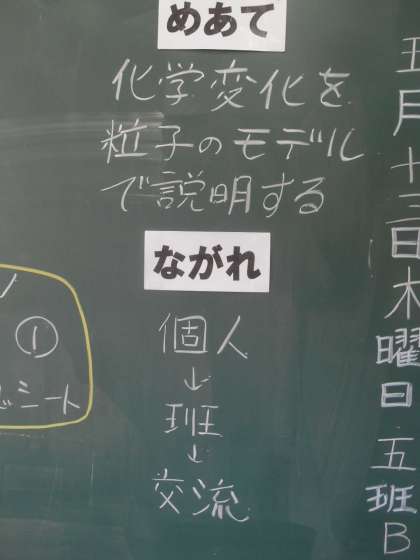 五月十三日木曜日五班B
めあて
化学変化を
粒子のモデル
で説明する
ながれ
個人
↓
班
↓
交流
①
シート